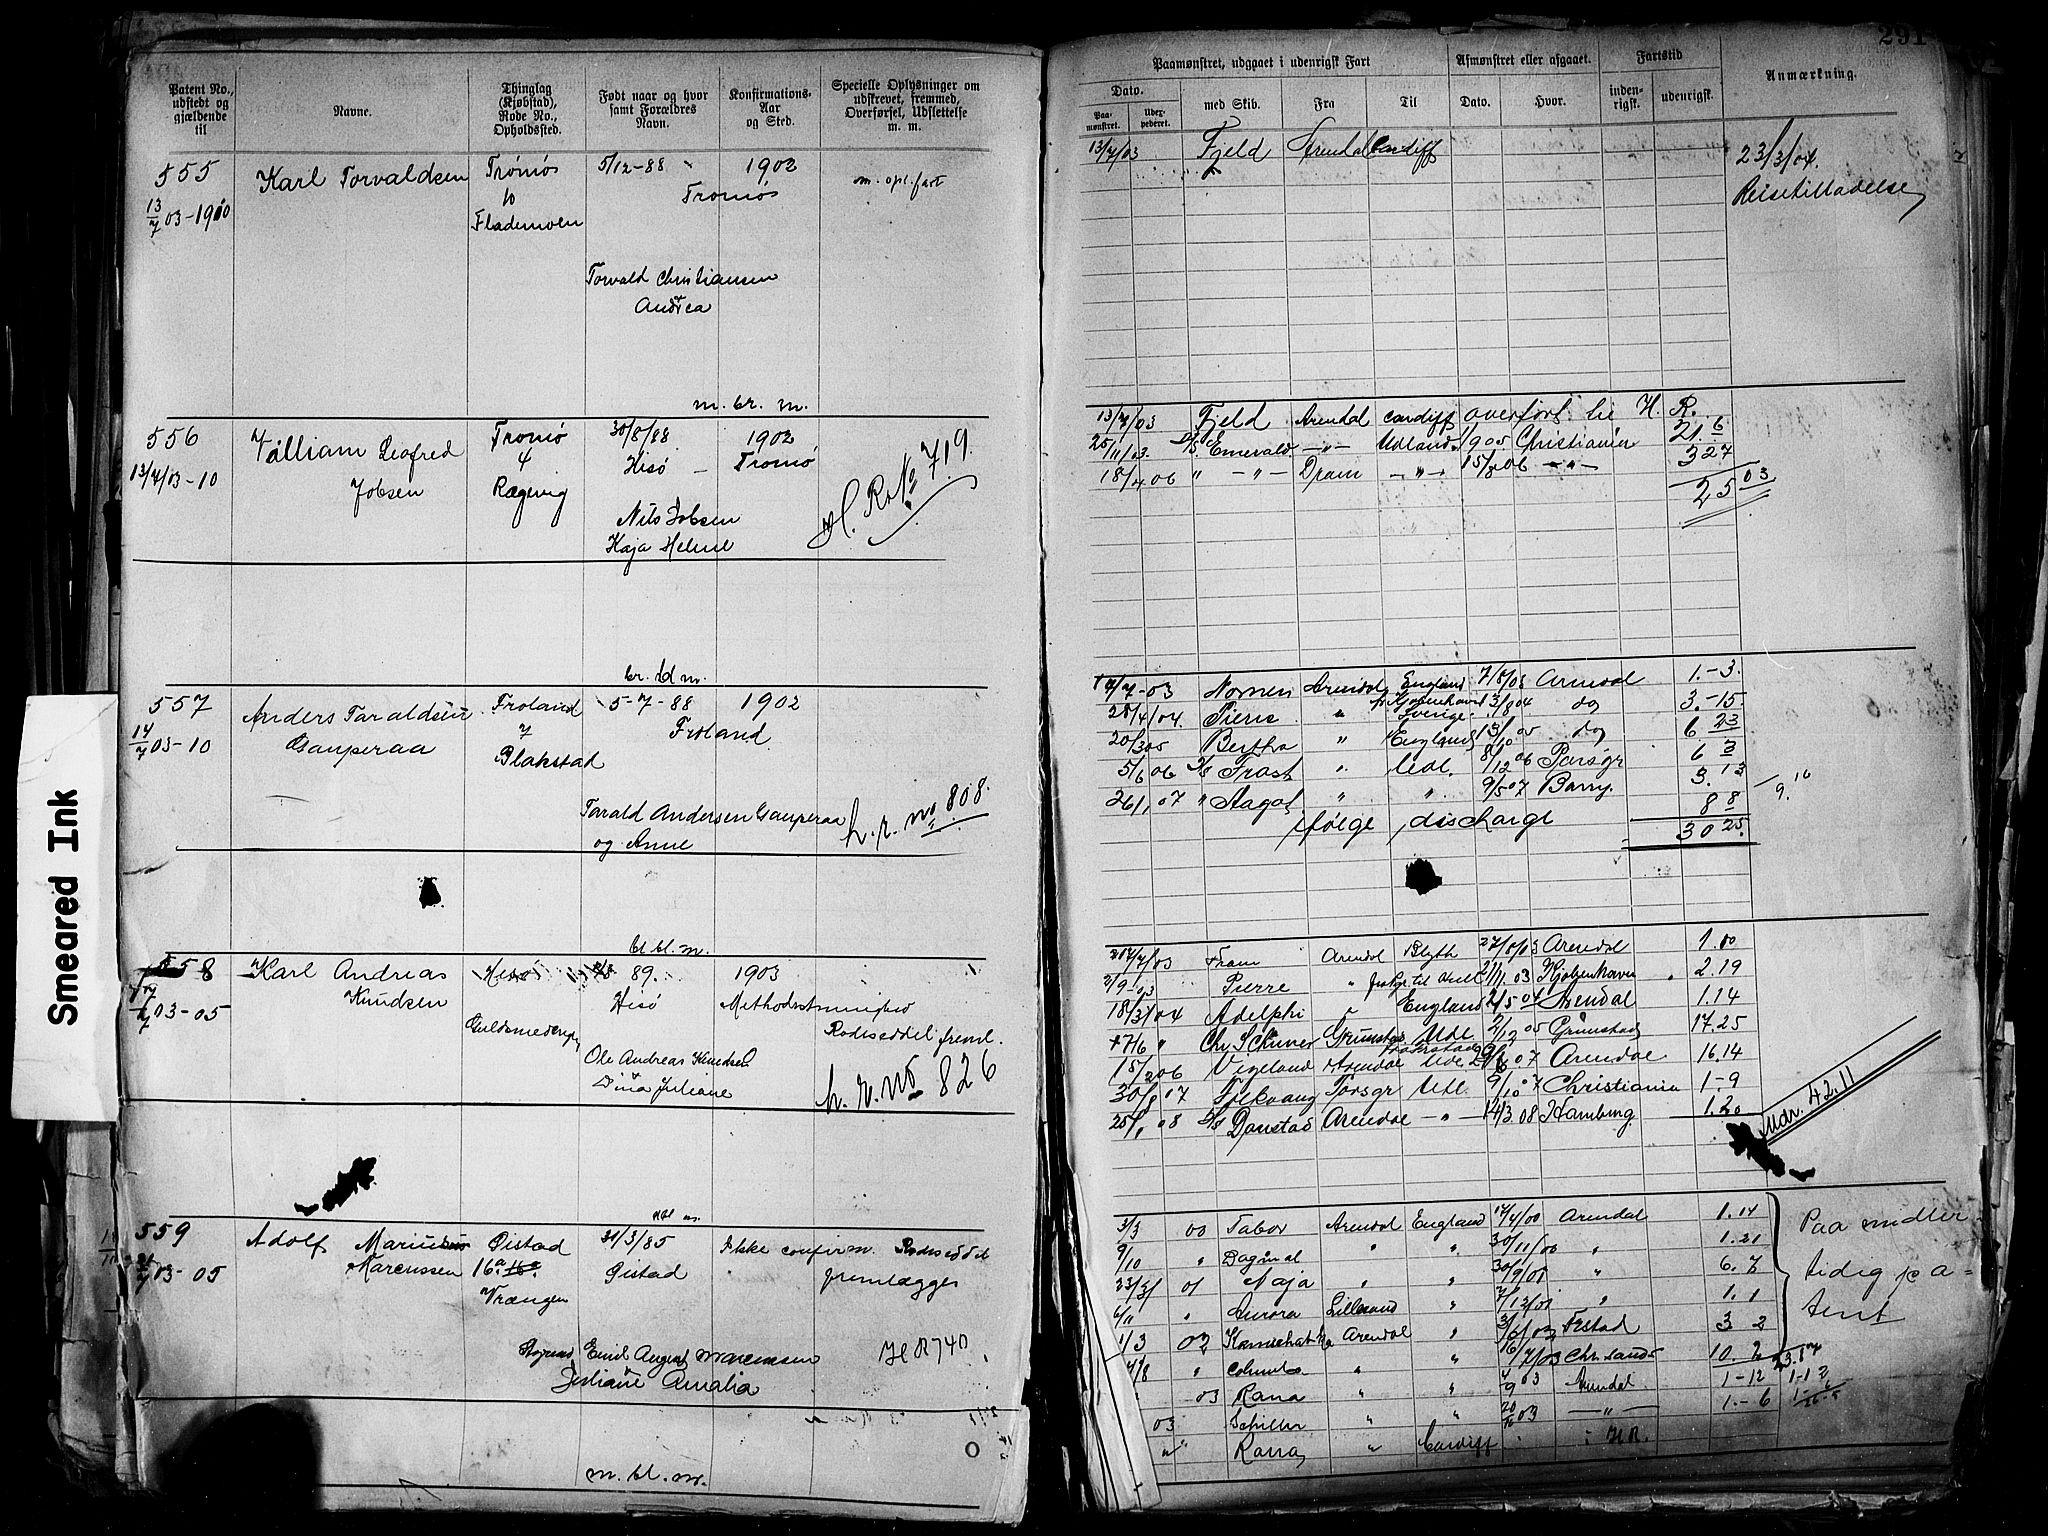 291
Patent No., udstedt og gjældende til
Navne.
Thinglag (Kjøbstad), Rode No., Opholdssted.
Født naar og hvor samt Forældres Navn.
Konfirmations-Aar og Sted.
Specielle Oplysninger om udskrevet, fremmed, Overførsel, Udslettelse m. m.
Paamønstret, udgaaet i udenrigsk Fart
Afmønstret eller afgaaet.
Fartstid
Anmærkning.
Dato.
Paa-mønstret.
med Skib.
Fra
Til
Dato.
Hvor.
inden-rigsk.
udenrigsk.
555
13/7 03-1910
Karl Torvaldsen
Tromøs
10
Flademoen
5/12-88
1902
Tromøs
m. opl. fart
Torvald Christiansen
Andrea
m. br. m.
13/7/03 Fjeld Arendal Cardiff
23/3/04.
Reisetilladelse
556
13/7/03-10
William Leofred
Jobsen
Tromø
4
Rægevig
30/8/88
Hisø
1902
Tromø
Nils Jobsen
Kaja Helene
H. R. No 719.
13/7/03 Fjeld Arendal Cardiff overført til H. R.
25/11/03. D/S. Emerald -"- Udland 1905 Christiania 21.6
18/4 06 " -"- Dram -"- 15/8 06 -"- 3 27
25 03
br. bl m.
557
14/7 03-10
Anders Taraldsen
Gauperaa
Froland
7
Blakstad
5-7-88
Froland
1902
Tarald Andersen Gauperaa
og Anne
h. r. no 808.
14/7-03 Nornen Arendal England 7/8/03 Arendal 1.-3.
Kjøbenhavn
Sverige 13/8 04 do 3.-15.
20/3 05 Bertha " England 13/10 05 do 6 23
5/6 06 D/S Frost " Udl. 8/12 06 Porsgr 6 3
26/1, 07 " " " 9/5 07 Barry. 3. 13
ifølge discharge 8 8
30 25.
9. 10
bl bl. m.
558
7 03-05
Karl Andreas
Knudsen
Hisø
Guldsmedengen
89.
Hisø
1903
Methodistmenighed
Rodeseddel freml.
Ole Andreas Knudsen
Dina Juliane
h. r. no 826
17/7/03 Fram Arendal Blyth 27/8/03 Arendal 1.00
Pierre " 2/11. 03 Kjøbenhavn 2.19
18/3/04 Adelphi " England 2/5 04 Arendal 1.14
7/6 " Chr. Schiner Grimstad Udl 2/12 05 Grimstad 17.25
15/2 06 Vigeland Arendal Udl. 07 Arendal 16.14
30/8 07 Folkvang Porsgr Udl. 9/10 07 Christiania 1-9
25/1 08 D/S Danstad Arendal -"- 14/3. 08 Hamburg. 1.20
Mdr. 42.11
559
03-05
Adolf Marius
Marcussen
Øistad
16a
Vrængen
31/3/85
Øistad
Ikke confirm. Rodeseddel
fremlægges
Emil August Marcussen
Juliane Amalia
H R 740
m. bl. m.
3/3 00 Tabor Arendal England 14/4/00 Arendal 1.14
9/10 " Dagmar " " 30/11/00 " 1.21
23/3/ 01 Naja " " 30/9/01 " 6.7
6/11 " Aurora Lillesand " 7/12/01 " 1.1
1/3 02 Kamschatka Arendal " 3/6/02 3 2
" Columba " " 16/7/03 Chr.sand 10. 2
03 Rana " " 9 03 Arendal 1-12
03 Schiller " " 20/10 03 -"- 1.-6
" Rana " Cardiff H R.
Paa midler-
tidig pa-
tent
Smeared Ink